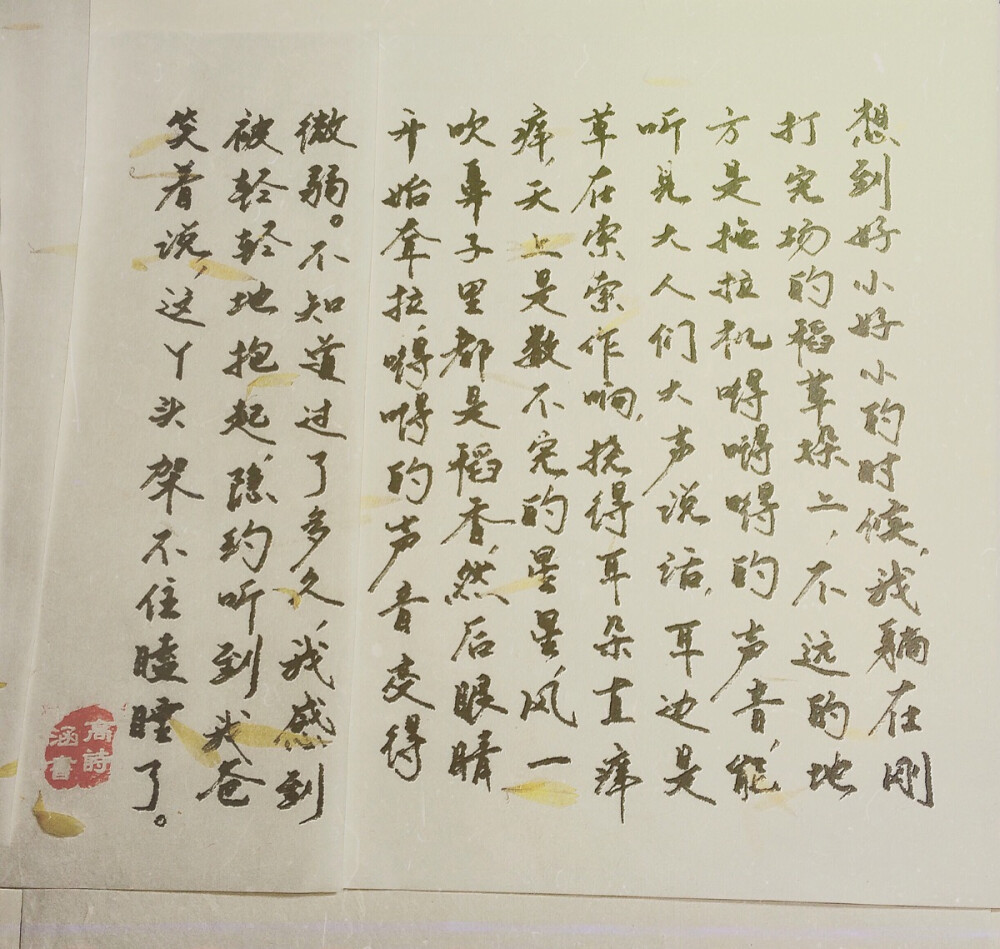 想到好小好小的时候，我躺在刚
打完场的稻草垛上，不远的地
方是拖拉机嘚嘚嘚的声音，能
听见大人们大声说话，耳边是
草在索索作响，挠得耳朵直痒
痒，天上是数不完的星星，风一
吹鼻子里都是稻香，然后眼睛
开始耷拉，嘚嘚的声音变得
微弱。不知道过了多久，我感到
被轻轻地抱起，隐约听到我爸
笑着说，这丫头架不住瞌睡了。
高詩
涵書